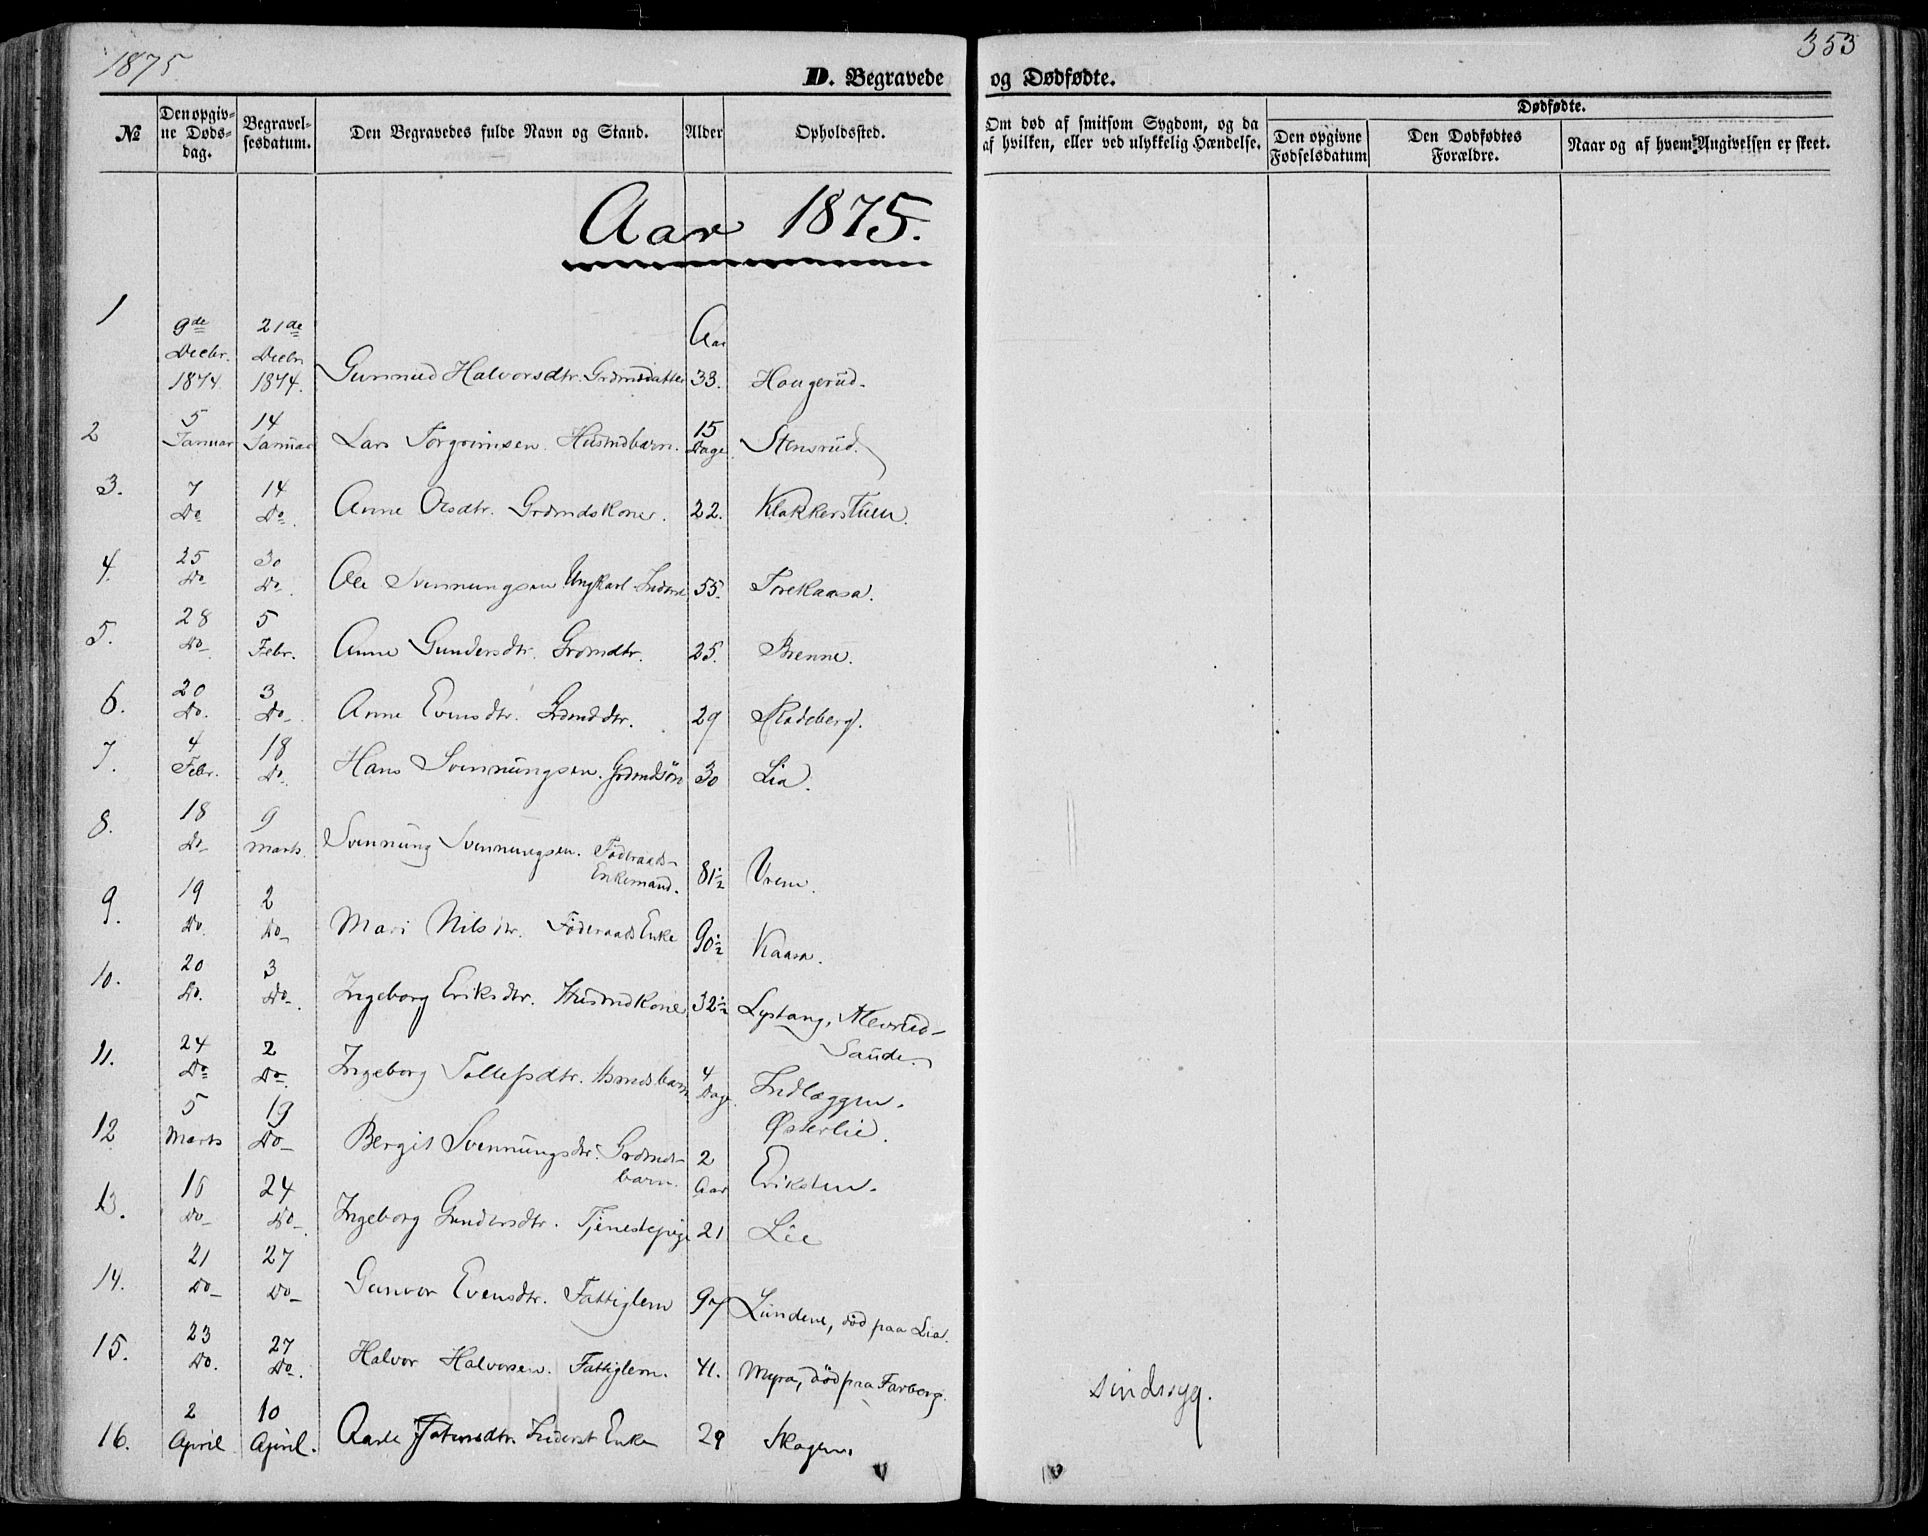 1875
353
D. Begravede og Dødfødte.
№
Den opgivne Døds-dag.
Begravel-sesdatum.
Den Begravedes fulde Navn og Stand.
Alder
Opholdssted.
Om død af smitsom Sygdom, og da af hvilken, eller ved ulykkelig Hændelse.
Dødfødte.
Den opgivne Fødselsdatum
Den Dødfødtes Forældre.
Naar og af hvem Angivelsen er skeet.
Aar 1875.
1 9de Decbr. 1874 21de Decbr 1874. Gunnud Halvorsdtr. Grdmdsdatter Aar 33. Haugerud.
2 5 Januar 14 Januar Lars Torgrimsen. Husmdbarn. 15 Dage Stensrud.
3. 7 Do 14 Do. Anne Olsdtr. Grdmdskone. 22. Klakkerstuen.
4. 25 Do 30 Do. Ole Svennungsen Ungkarl Inderst 55. Torekaasa.
5. 28 Do 5 Febr. Anne Gundersdtr. Grdmdtr. 25. Brenne.
6. 20 Do. 3 Do Anne Evensdtr. Grdmddtr. 29
7. 4 Febr. 18 Do. Hans Svennungsen. Grdmdsøn 30 Lia.
8. 18 Do 9 Marts. Svennung Svennungsen. Føderaads-Enkemand. 81½ Vrem.
9. 19 Do. 2 Do Mari Nilsdtr. Føderaads Enke 90½ Kaasa.
10. 20 Do. 3 Do. Ingeborg Eriksdtr. Husmdkone 32½ Lystang, Saude.
11. 24 Do 2 Do. Ingeborg Tollefsdtr. Hsmdsbarn 4 Dage. Indlæggen. Østerlie.
12 5 Marts 19 Do Bergit Svennungsdtr. Grdmds-barn. 2 Aar Erikstuen.
13. 16 Do 24 Do. Ingeborg Gundersdtr. Tjenestepige 21 Lie
14. 21 Do 27 Do Gunvor Evensdtr. Fattiglem 97 Lundene, død paa Lia.
15. 23 Do. 27 Do. Halvor Halvorsen. Fattiglem. 41. Myra, død paa Farberg. sindssyg.
16. 2 April 10 April. Aasle Inderst Enke 29 Skogen.